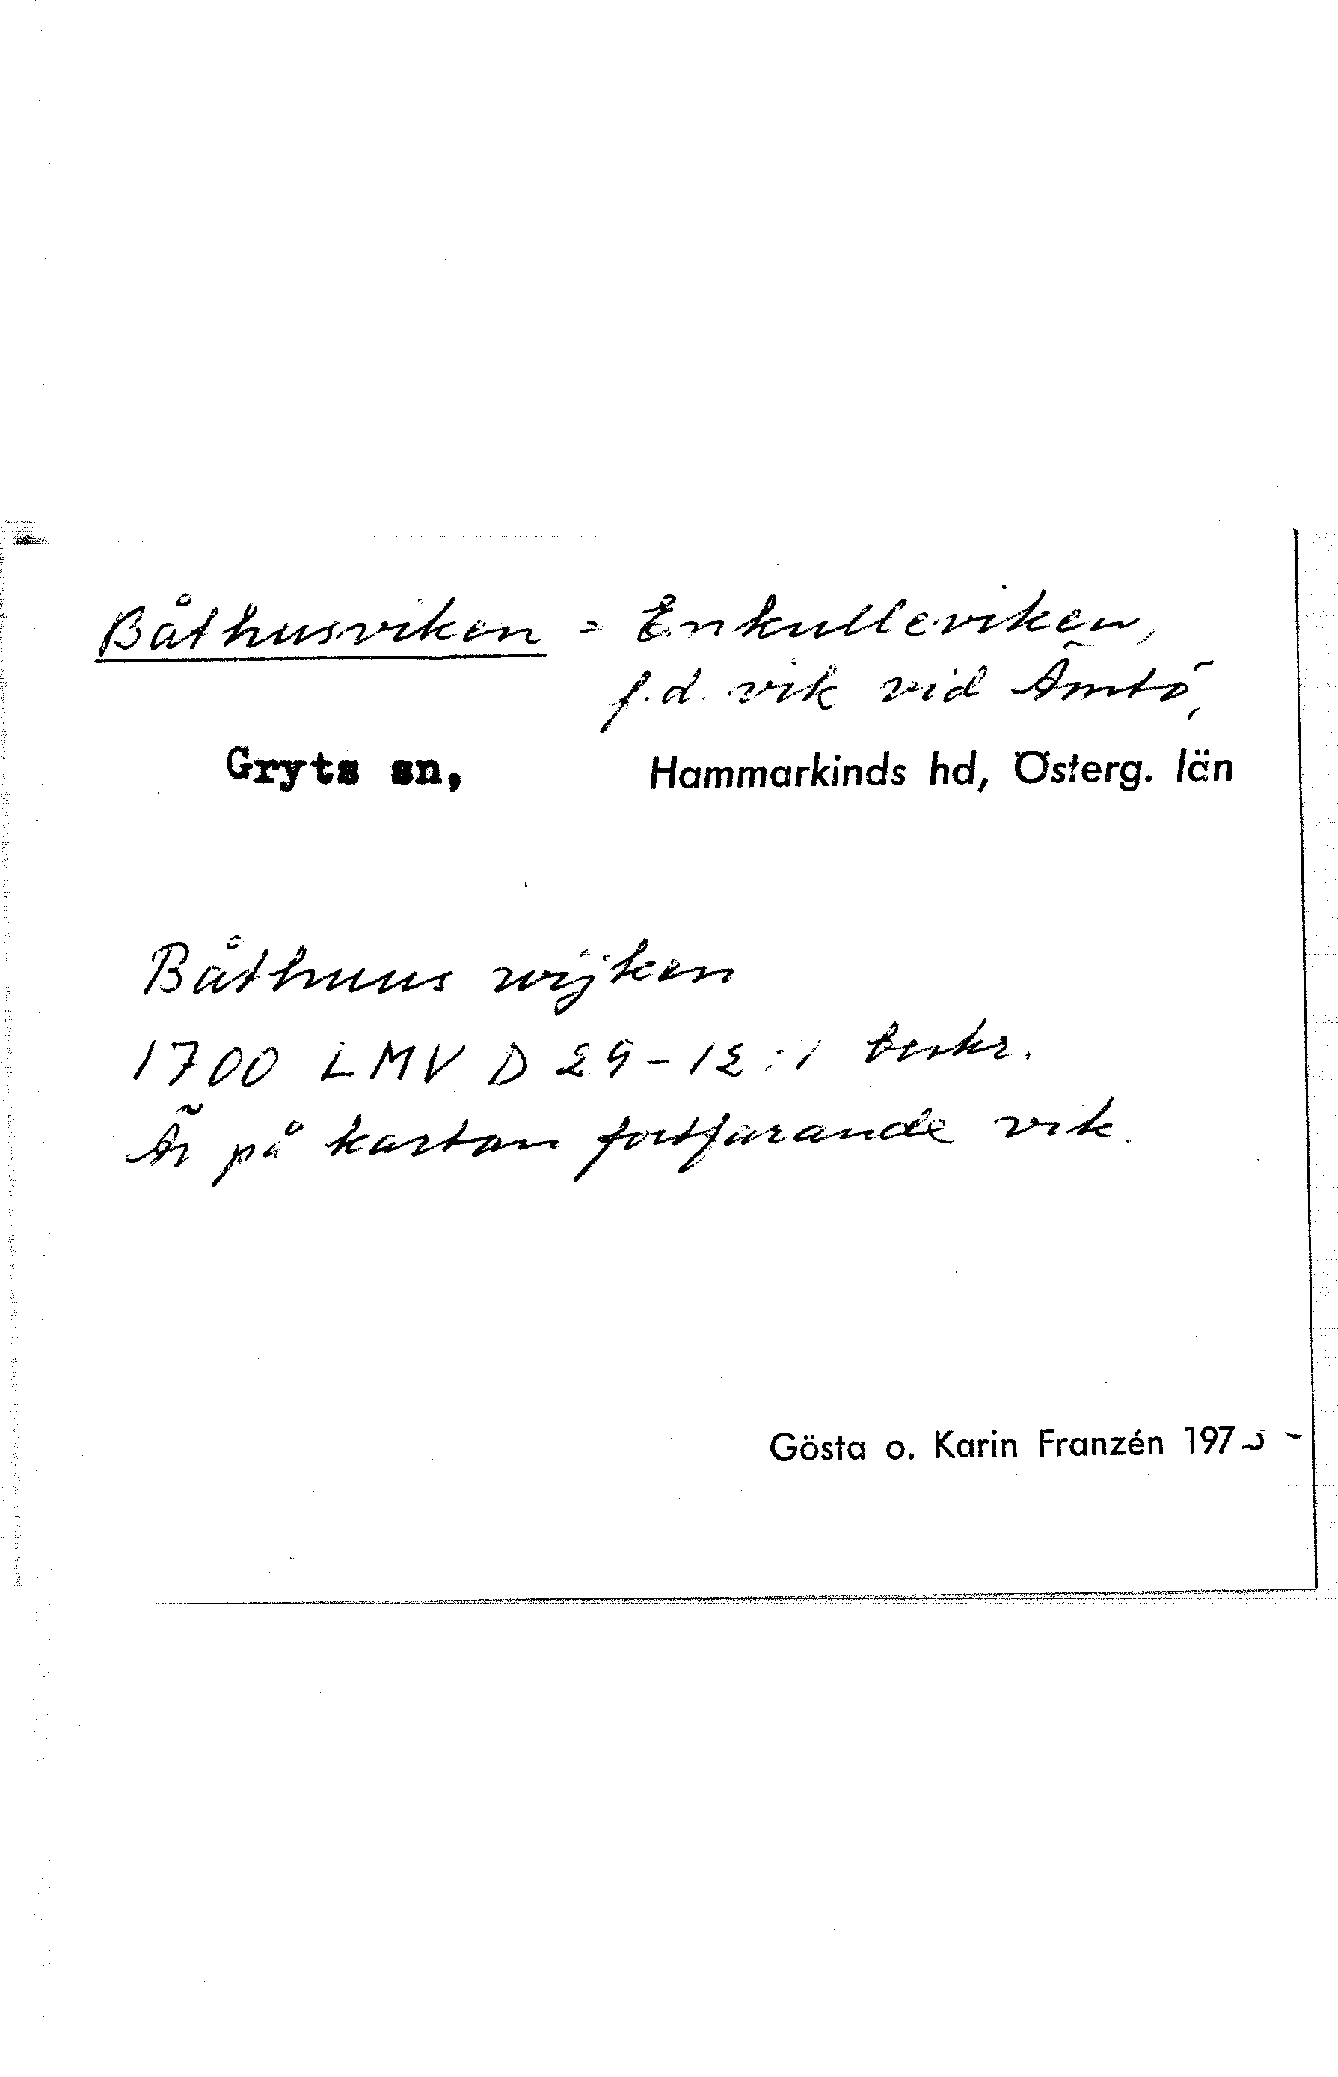 Båthusviken = Enkulleviken,
f.d. vik vid Ämtö,
Gryts sn, Hammarkinds hd, Österg. län
Båthuus wijken
1700 LMV D 29-12:1 beskr.
Är på kartan fortfarande vik.
Gösta o. Karin Franzén 197